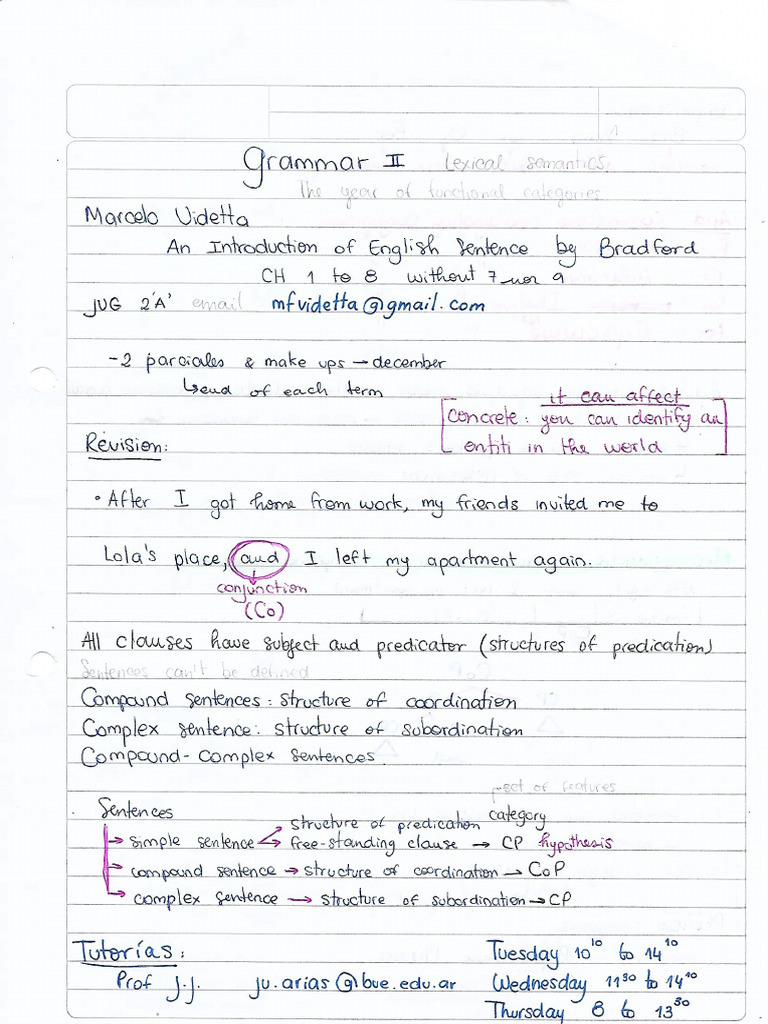 Grammar II Lexical semantics
The year of functional categories
Marcelo Videtta
An Introduction of English Sentence by Bradford
CH 1 to 8 without 7 nor 9
JUG 2'A' email mfvidetta@gmail.com
-2 parciales & make ups → december
↳ end of each term
it can affect
[Concrete: you can identify an
entiti in the world]
Revision:
• After I got home from work, my friends invited me to
Lola's place, and I left my apartment again.
conjunction
(Co)
All clauses have subject and predicator (structures of predication)
Sentences can't be defined
Compound sentences: structure of coordination
Complex sentence: structure of subordination
Compound-complex sentences.
of features
Sentences
structure of predication category
→ simple sentence free-standing clause → CP hypothesis
→ compound sentence → structure of coordination → CoP
→ complex sentence → structure of subordination → CP
Tutorías: Tuesday 10¹⁰ to 14¹⁰
Prof J.J. ju.arias@bue.edu.ar Wednesday 11³⁰ to 14¹⁰
Thursday 8 to 13³⁰